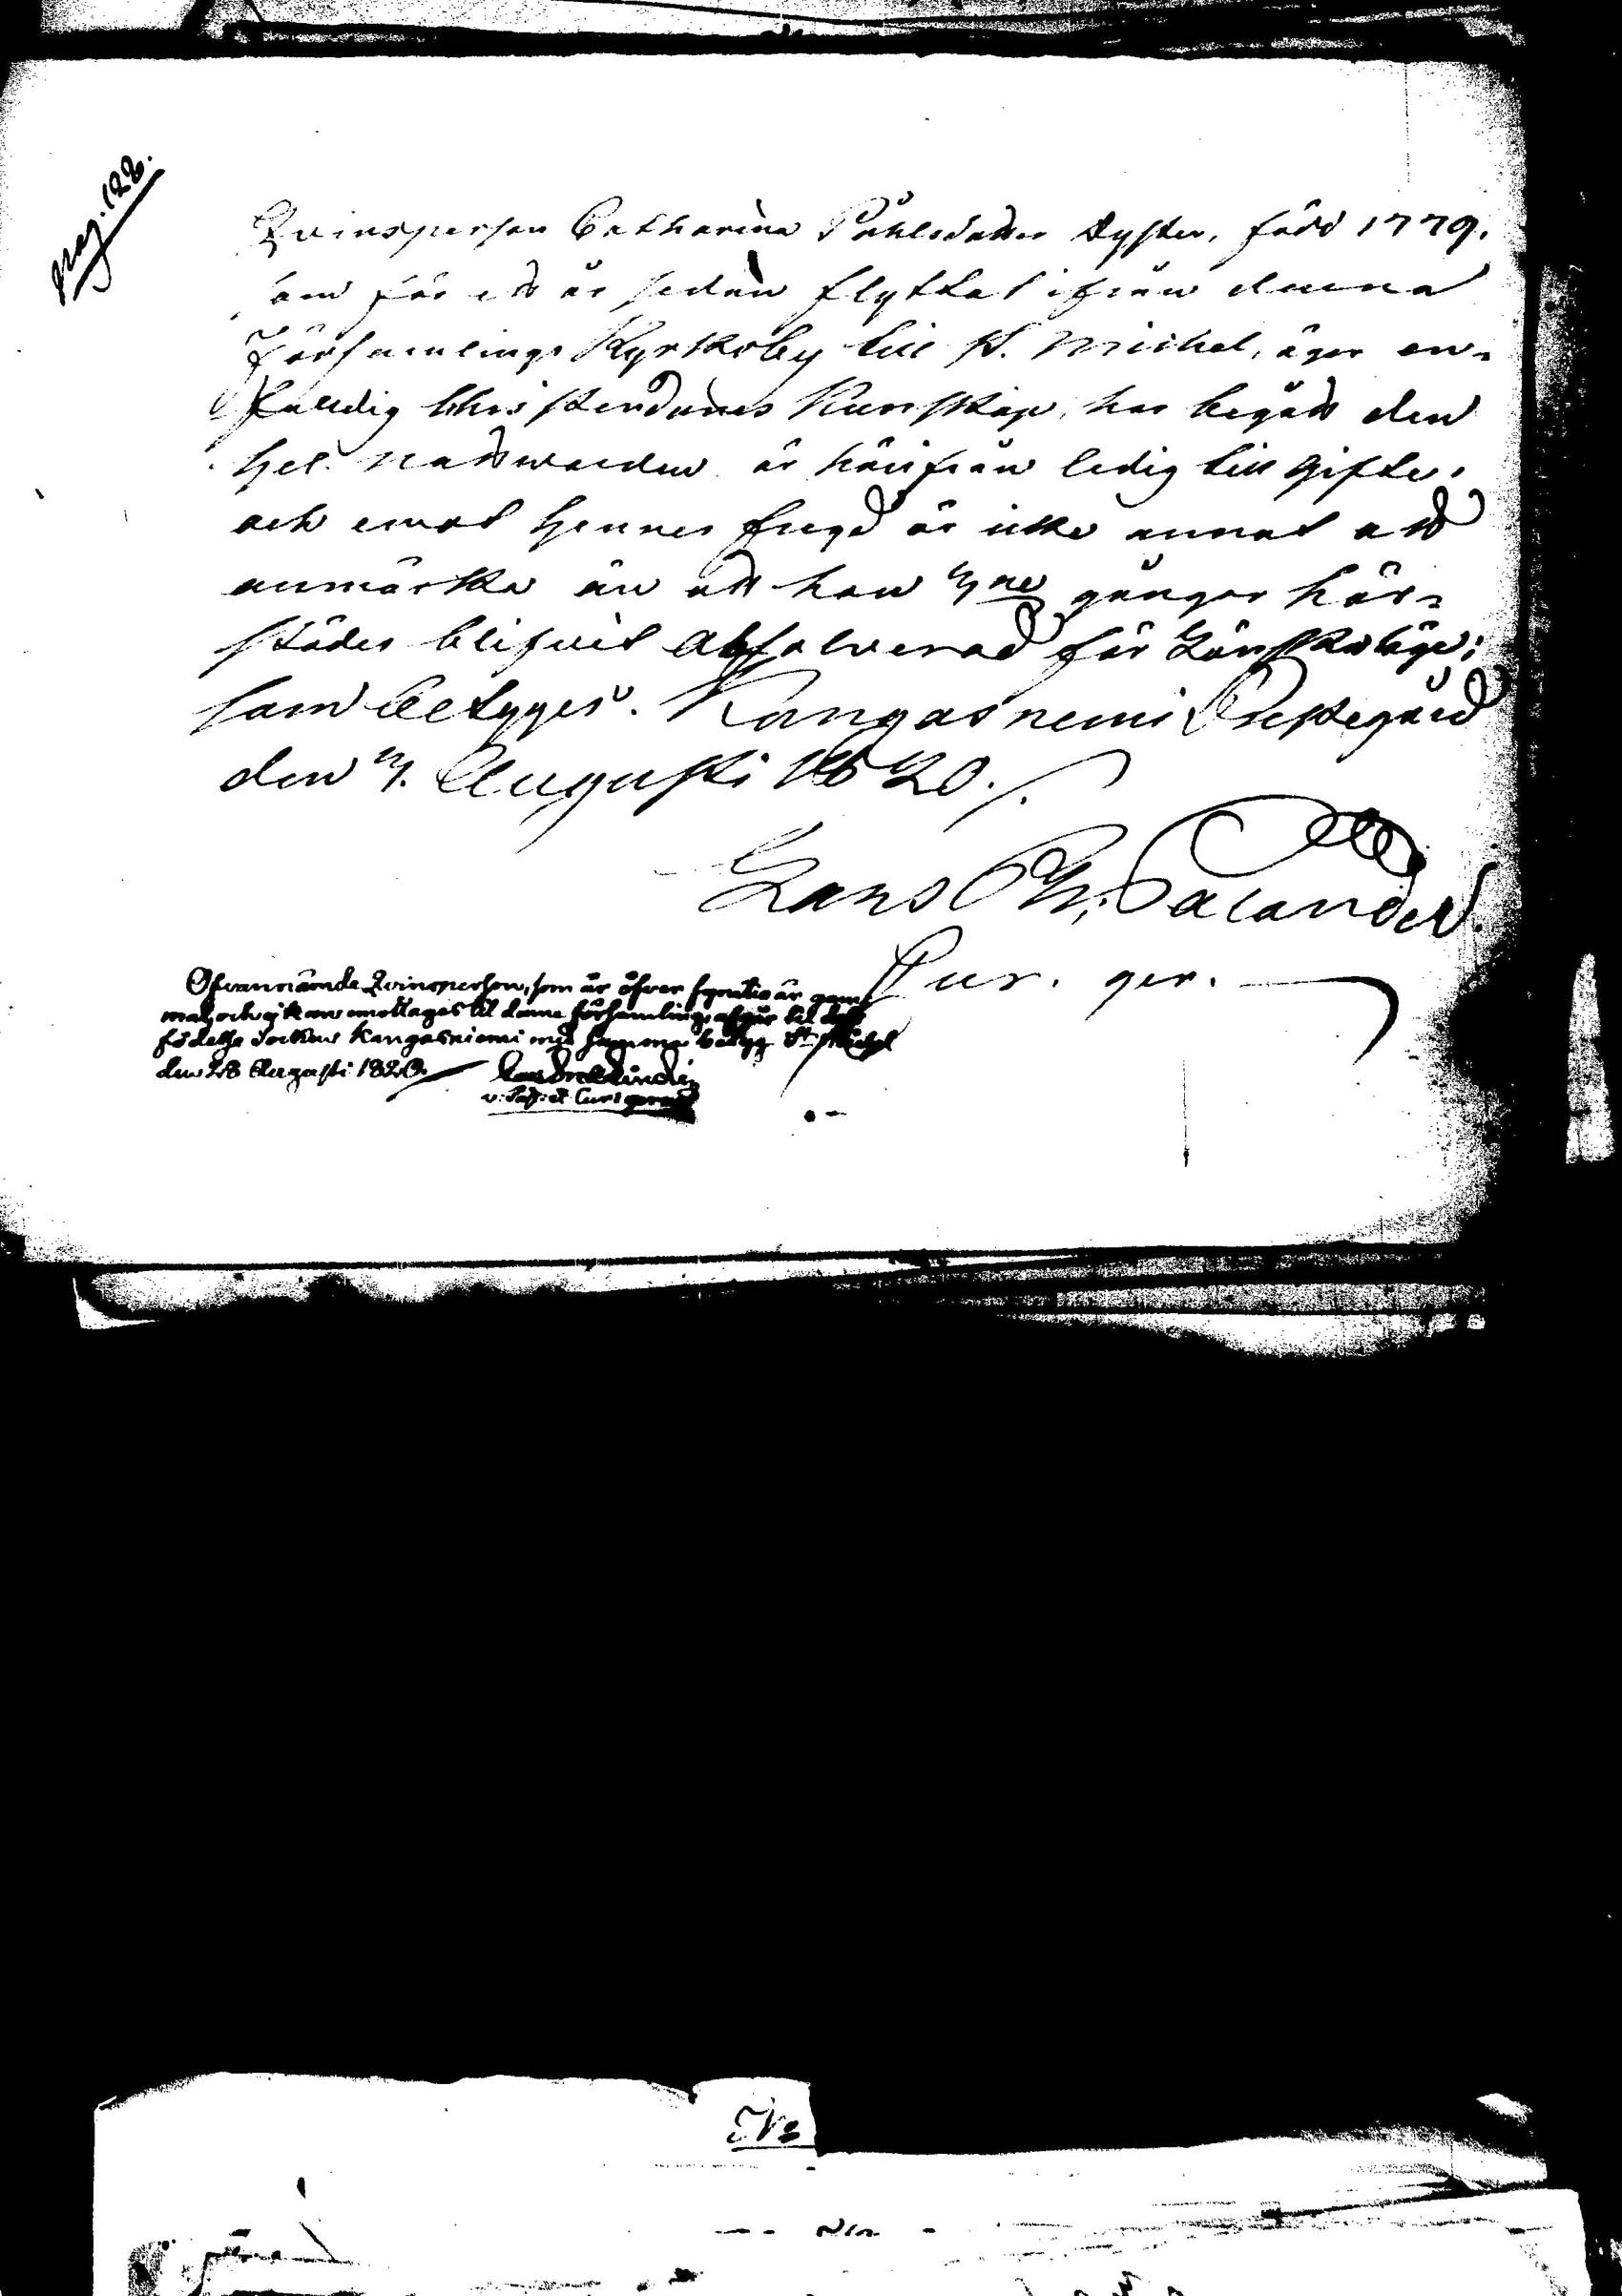 pag. 122.
Qvinsperson Catharina Påhlsdotter Dyster, född 1779.
som för ett år sedan flyttat ifrån denna
Församlings Kyrkoby till St. Michel, äger en-
faldig Christendoms Kunskap, har begått den
Hel. Nattwarden är härifrån ledig till Gifte,
och emot Hennes frejd är icke annat att
anmärka än att hon gångor här-
städes blifwit Absolverad för Lönskaläge;
som betyges. Kangasniemi Prestegård
den Augusti 1820.
Lars Palander.
Cur. ger.
Ofvannämde Qvinsperson, som är öfver fyratio år gam-
mal, och ej kan emottagas til denne församling, afgår til dess
födelse Socken Kangasniemi med samma betyg St Michel
den 28 Augusti 1820.
v: Past: et Cur: gerens
No